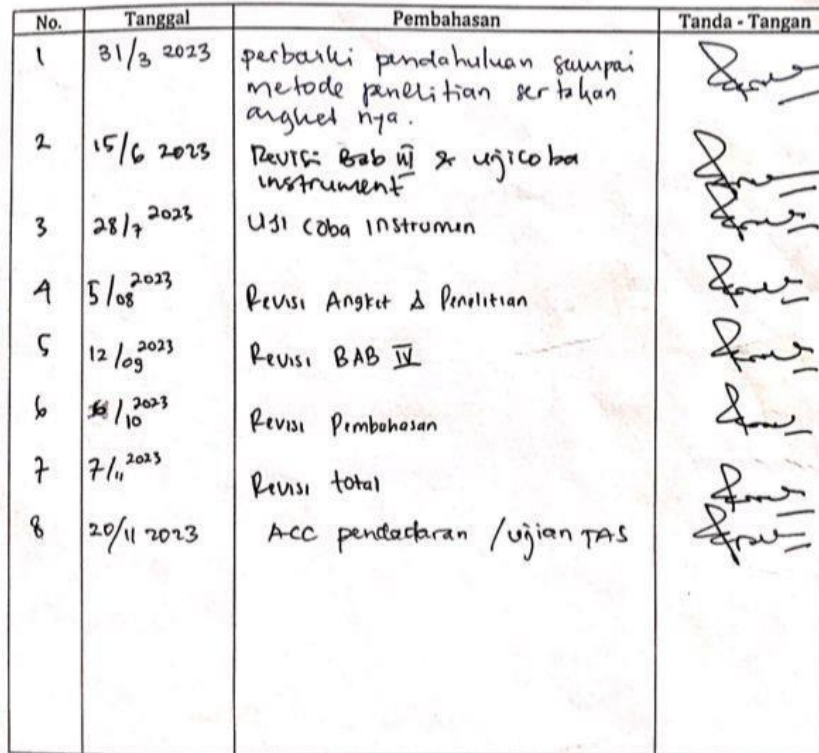 No. Tanggal Pembahasan Tanda - Tangan
1 31/3 2023 perbaiki pendahuluan sampai
metode penelitian sertakan
angket nya.
2 15/6 2023 Revisi Bab III & ujicoba
instrument
3 28/7 2023 Uji coba Instrumen
4 5/08 2023 Revisi Angket & Penelitian
5 12/09 2023 Revisi BAB IV
6 /10 2023 Revisi Pembahasan
7 7/11 2023 Revisi total
8 20/11 2023 ACC pendadaran / ujian TAS